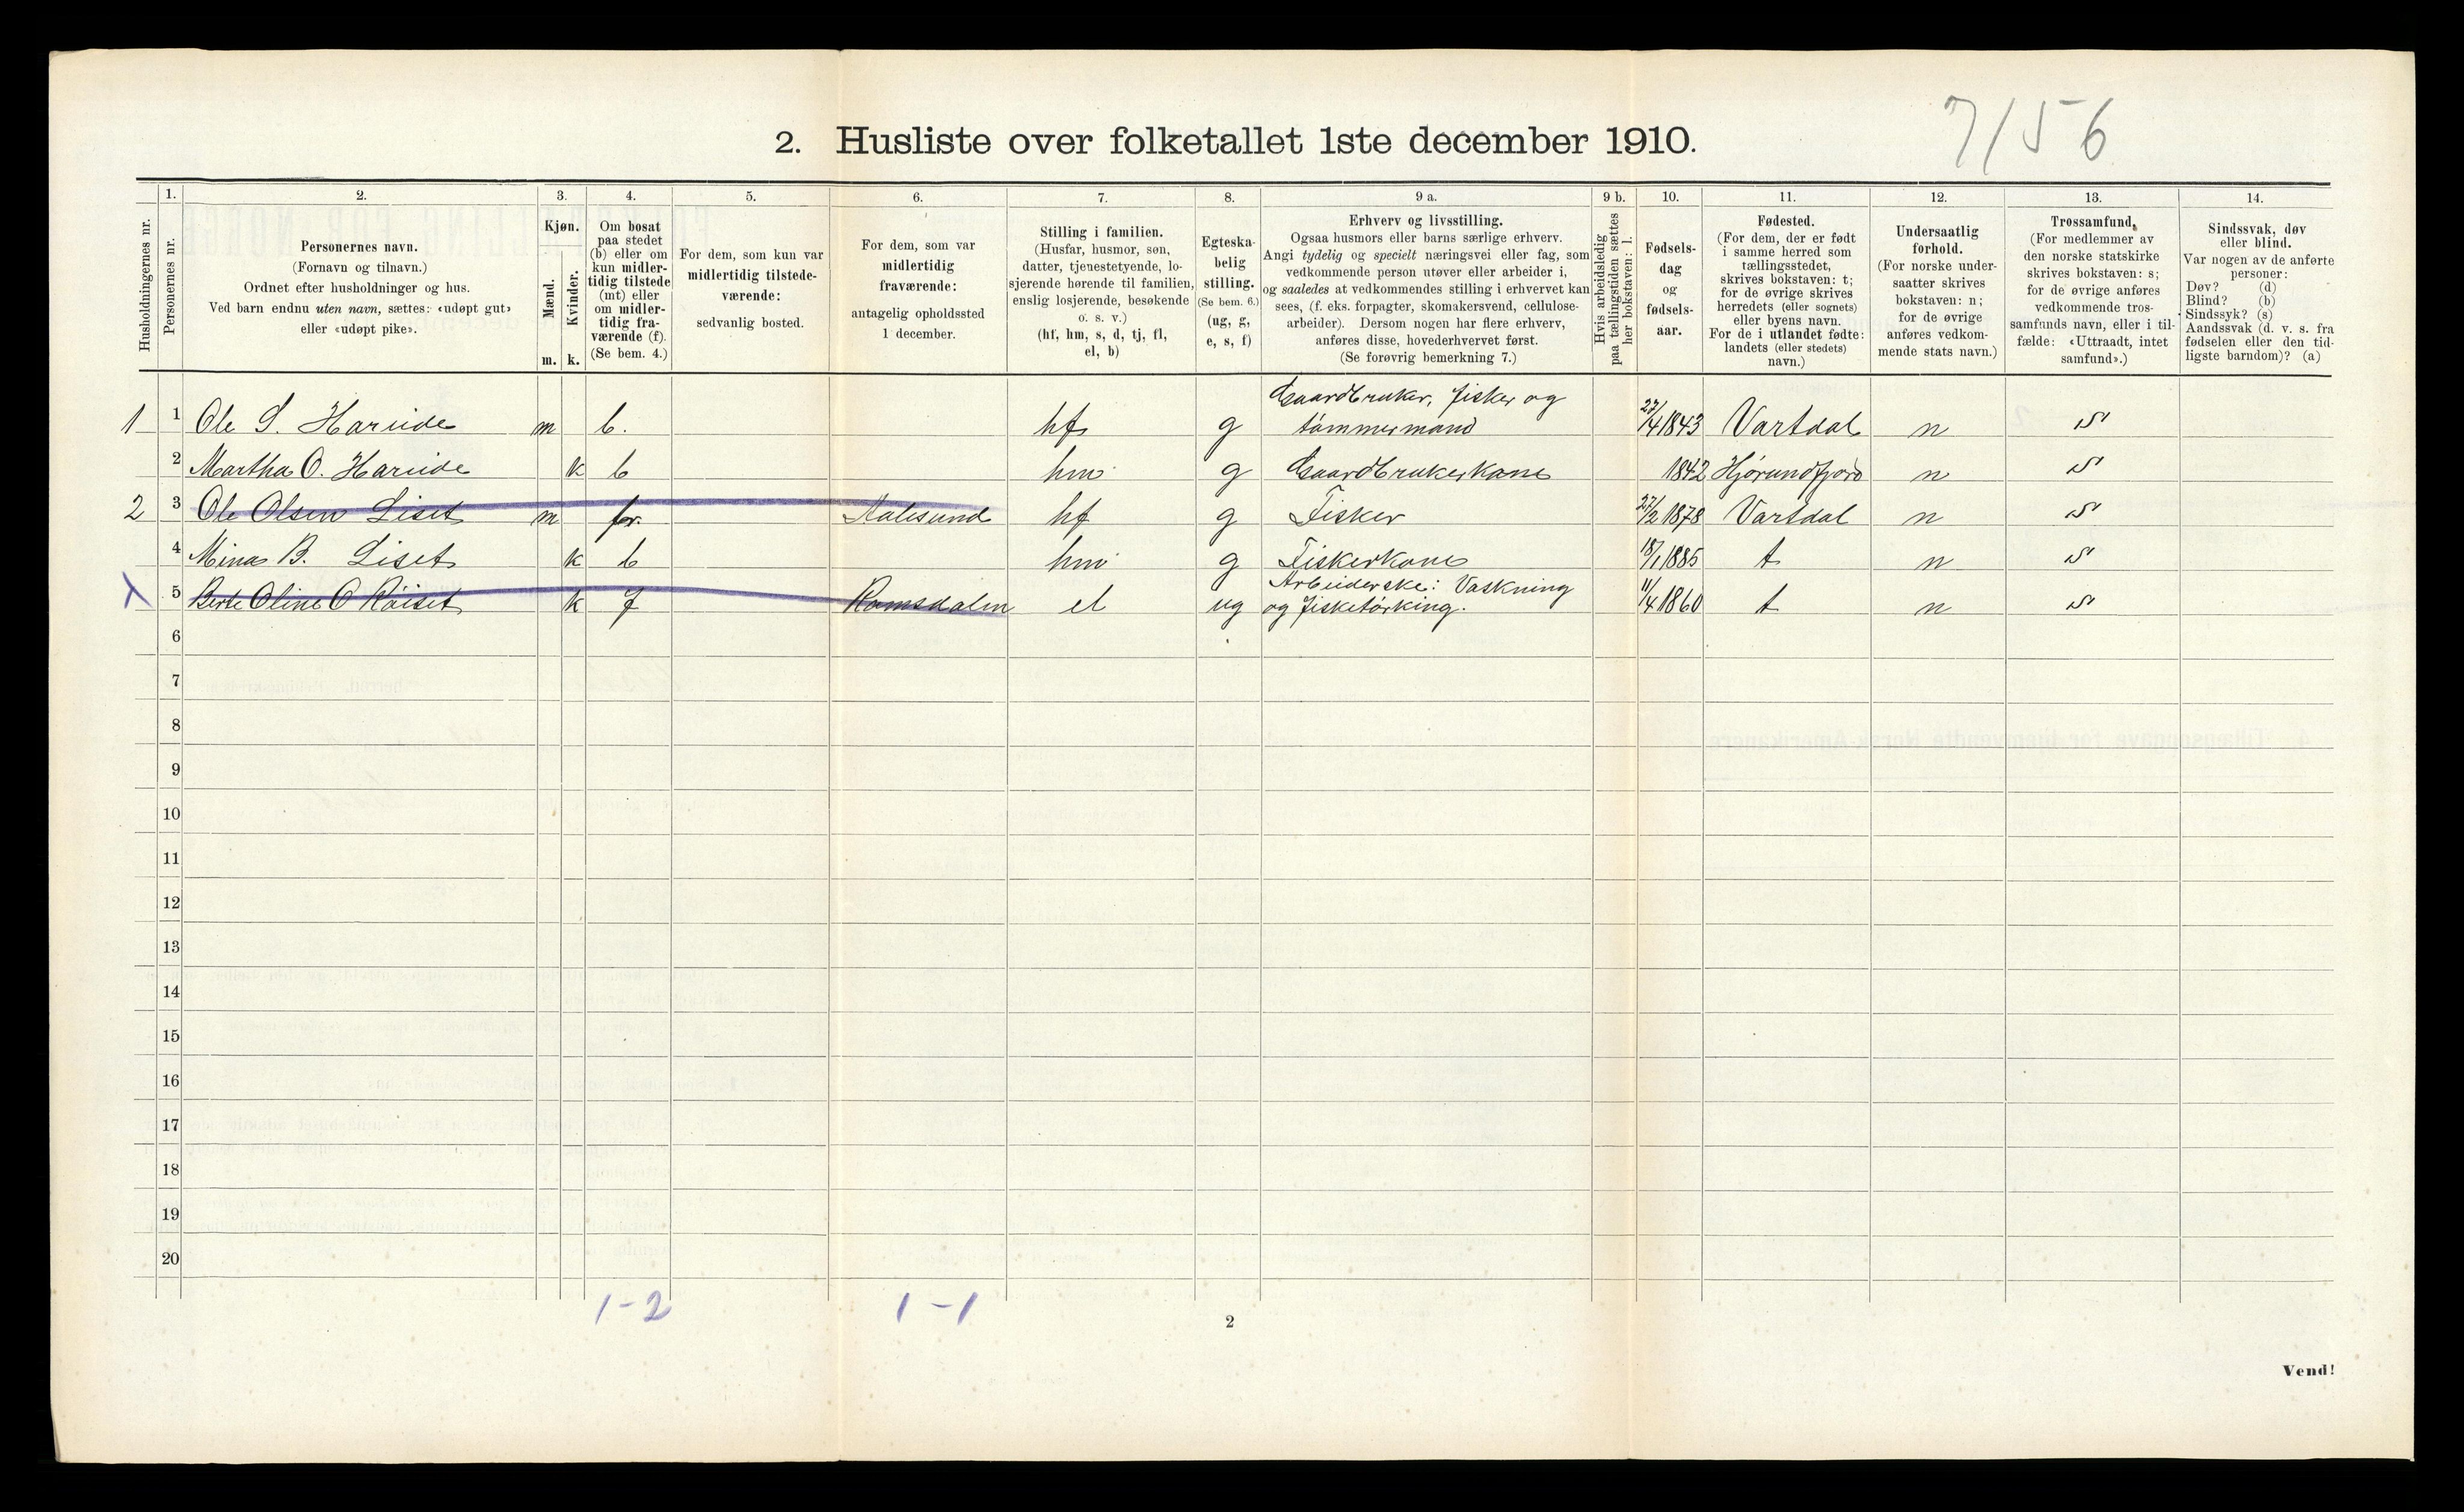 7/56
2. Husliste over folketallet 1ste december 1910.
Husholdningernes nr.
1.
Personernes nr.
2.
Personernes navn.
(Fornavn og tilnavn.)
Ordnet efter husholdninger og hus.
Ved barn endnu uten navn, sættes: «udøpt gut»
eller «udøpt pike».
3.
Kjøn.
Mænd.
Kvinder.
m. k.
4.
Om bosat
paa stedet
(b) eller om
kun midler-
tidig tilstede
(mt) eller
om midler-
tidig fra-
værende (f).
(Se bem. 4.)
5.
For dem, som kun var
midlertidig tilstede-
værende:
sedvanlig bosted.
6.
For dem, som var
midlertidig
fraværende:
antagelig opholdssted
1 december.
7.
Stilling i familien.
(Husfar, husmor, søn,
datter, tjenestetyende, lo-
sjerende hørende til familien,
enslig losjerende, besøkende
o. s. v.)
(hf, hm, s, d, tj, fl,
el, b)
8.
Egteska-
belig
stilling.
(Se bem. 6.)
(ug, g,
e, s, f)
9 a.
Erhverv og livsstilling.
Ogsaa husmors eller barns særlige erhverv.
Angi tydelig og specielt næringsvei eller fag, som
vedkommende person utøver eller arbeider i,
og saaledes at vedkommendes stilling i erhvervet kan
sees, (f. eks. forpagter, skomakersvend, cellulose-
arbeider). Dersom nogen har flere erhverv,
anføres disse, hovederhvervet først.
(Se forøvrig bemerkning 7.)
9 b.
Hvis arbeidsledig
paa tællingstiden sættes
her bokstaven: l.
10.
Fødsels-
dag
og
fødsels-
aar.
11.
Fødested.
(For dem, der er født
i samme herred som
tællingsstedet,
skrives bokstaven: t;
for de øvrige skrives
herredets (eller sognets)
eller byens navn.
For de i utlandet fødte:
landets (eller stedets)
navn.)
12.
Undersaatlig
forhold.
(For norske under-
saatter skrives
bokstaven: n;
for de øvrige
anføres vedkom-
mende stats navn.)
13.
Trossamfund.
(For medlemmer av
den norske statskirke
skrives bokstaven: s;
for de øvrige anføres
vedkommende tros-
samfunds navn, eller i til-
fælde: «Uttraadt, intet
samfund».)
14.
Sindssvak, døv
eller blind.
Var nogen av de anførte
personer:
Døv? (d)
Blind? (b)
Sindssyk? (s)
Aandssvak (d. v. s. fra
fødselen eller den tid-
ligste barndom)? (a)
Gaardbruker, fisker og
1 1 Ole S. Hareide m b. hf g tømmermand 27/4 1843 Vartdal n s
2 Martha O. Hareide k b hm g Gaardbrukerkone 1842 Hjørundfjord n s
2 3 Ole Olsen Liset m fr. Aalesund hf g Fisker 27/2 1878 Vartdal n s
4 Mina B. Liset k b hm g Fiskerkone 18/1 1885 t n s
Arbeiderske: Vaskning
x 5 Berte Oline O Röiset k f Romsdalen el ug og fisketørking. 11/4 1860 t n s
6
7
8
9
10
11
12
13
14
15
16
17
18
19
20
1-2 1-1
2
Vend!